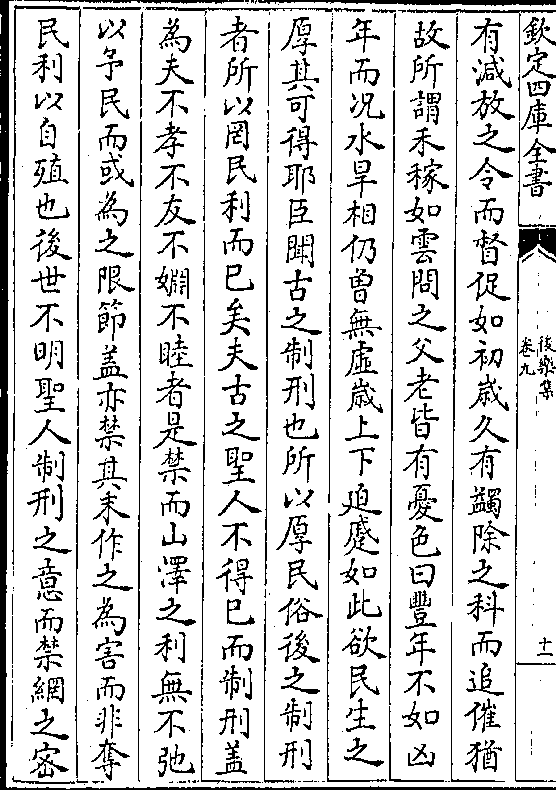 欽定四庫全書
後樂集
卷九
十一
有減放之令而督促如初歲久有蠲除之科而追催猶
故所謂禾稼如雲問之父老皆有憂色曰豐年不如凶
年而况水旱相仍曾無虛歲上下迫蹙如此欲民生之
厚其可得耶臣聞古之制刑也所以厚民俗後之制刑
者所以罔民利而已矣夫古之聖人不得已而制刑盖
為夫不孝不友不婣不睦者是禁而山澤之利無不弛
以予民而或為之限節盖亦禁其末作之為害而非奪
民利以自殖也後世不明聖人制刑之意而禁網之密